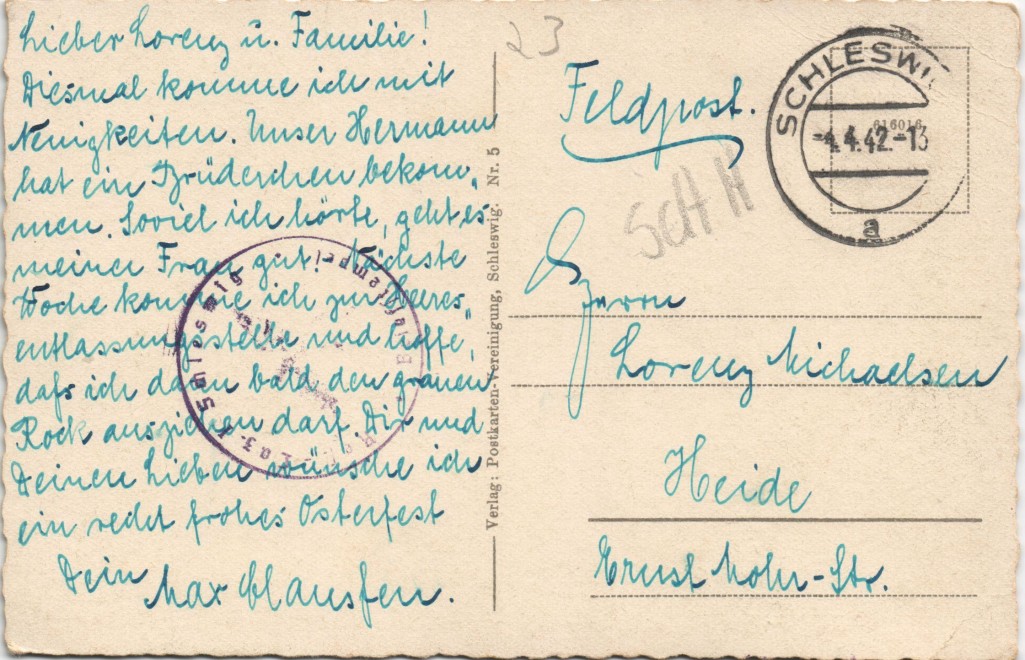 Lieber Lorenz u. Familie!
Diesmal komme ich mit
Neuigkeiten. Unser Hermann
hat ein Brüderchen bekom„
men. Soviel ich hörte, geht es
meiner Frau gut! Nächste
Woche komme ich zur Heeres„
entlassungsstelle und hoffe,
dafs ich dann bald den grauen
Rock ausziehen darf. Dir und
Deinen Lieben wünsche ich
ein recht frohes Osterfest
Dein
Max Claussen.
Verlag: Postkarten-Vereinigung, Schleswig. Nr. 5
23
Feldpost.
SCHLESWI
-4.4.42.-13
a
616016
Sch H
Herrn
Lorenz Michaelsen
Heide
Ernst Mohr-Str.
Schleswig